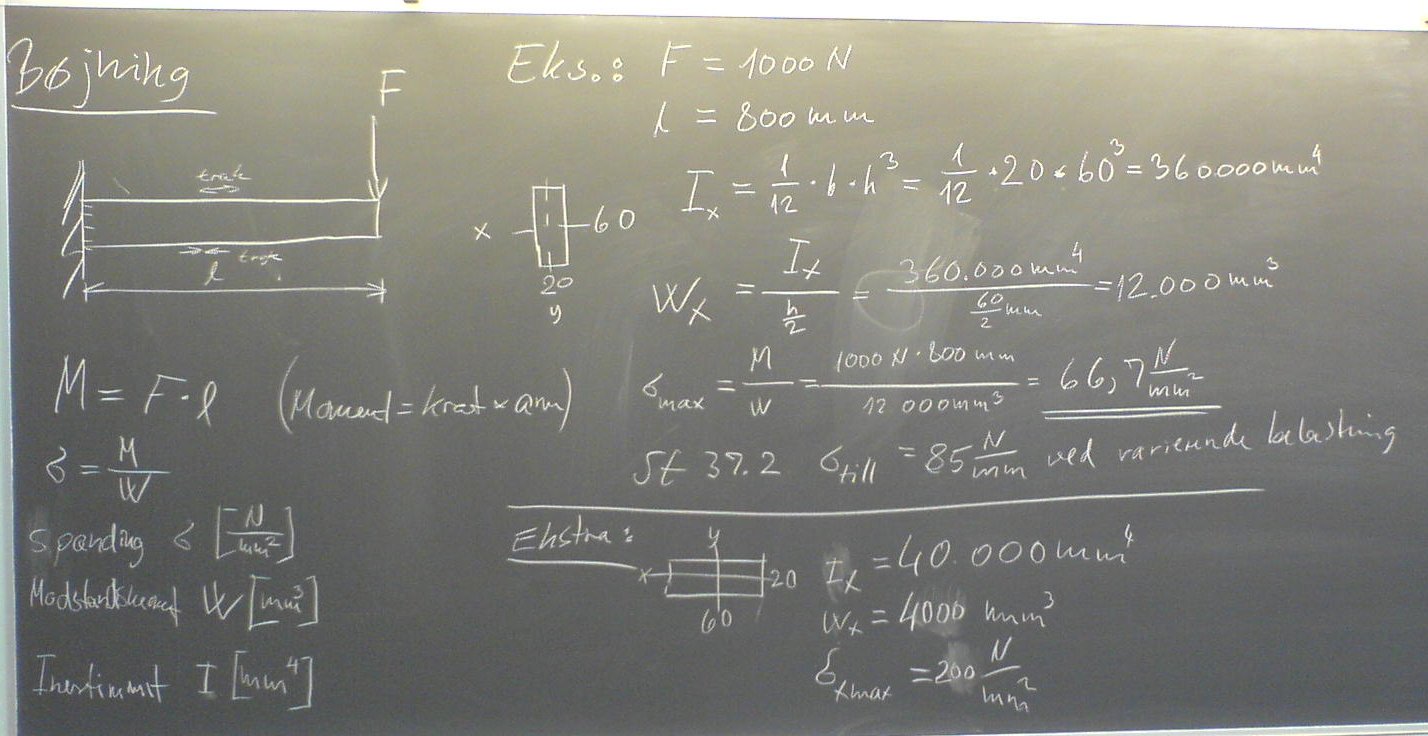 Bøjning
F
træk
l
tryk
x
60
20
y
M = F·l (Moment = kraft × arm)
σ = M/W
Spænding σ [N/mm²]
Modstandsmoment W [mm³]
Inertimomt I [mm⁴]
Eks.: F = 1000 N
l = 800 mm
Iₓ = 1/12 · b · h³ = 1/12 · 20 · 60³ = 360000 mm⁴
Wₓ = Iₓ/(h/2) = 360.000 mm⁴/(60/2 mm) = 12.000 mm³
σmax = M/W = 1000 N · 800 mm/12 000 mm³ = 66,7 N/mm²
St 37.2 σtill = 85 N/mm ved varierende belastning
Ekstra:
y
x
20
60
Iₓ = 40.000 mm⁴
Wₓ = 4000 mm³
σxmax = 200 N/mm²